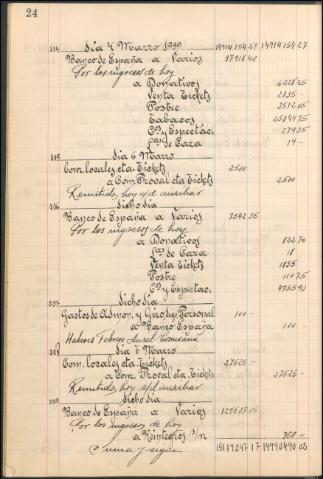 24
334 Día 4 Marzo 1939 14914154 27 14914154 27
Banco de España a Varios 37918 40
Por los ingresos de hoy
a Donativos 6228 25
Venta Tickets 2835
Postre 3512 05
Tabacos
Cªs y Espectac. 279 35
Lªs de Caza 19 -
335 Día 6 Marzo
Com. locales cta. Tickets 2500
a Com. Proval cta. Tickets 2500
Remitido, hoy s/d auxiliar
336 Dicho día
Banco de España a Varios
Por los ingresos de hoy
a Donativos
Lªs de Caza 18
Venta Tickets 1835
Postre 110 75
Cªs y Espectac. 4755 90
337 Dicho día
Gastos de Admon. y Giros, pg Personal 100 -
a Banco España 100 -
Haberes Febrero
338 Día 7 Marzo
Com. locales cta. Tickets 27525 -
a Com. Proval cta. Tickets 27525 -
Remitido, hoy s/d auxiliar
339 Dicho día
Banco de España a Varios
Por los ingresos de hoy
a Reintegros s/n 750 -
Suma y sigue 15119247 17 14990490 02